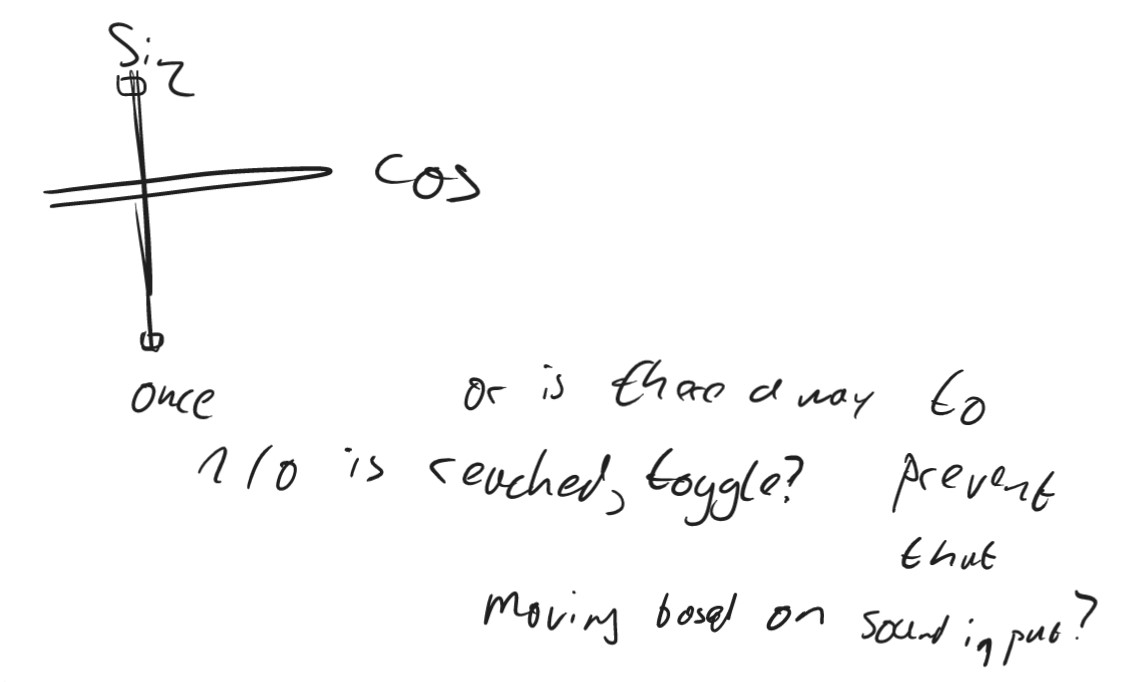 Sin
cos
once
1/0 is reached, toggle?
or is there a way to
prevent
that
moving based on sound input?